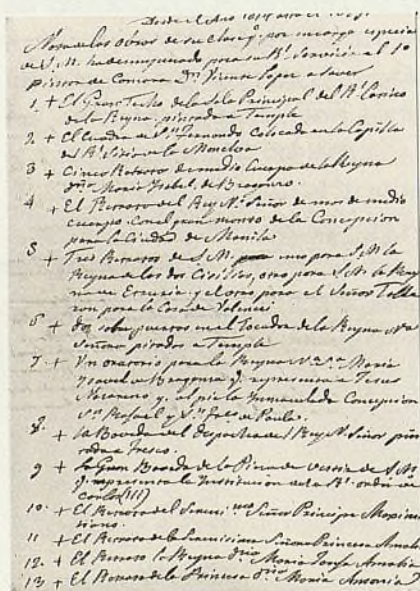 Desde el Año 1814 asta el 
Nota de las obras de su clase q.e por encargo especial
de S. M. ha desempeñado para su R.l servicio el 1.o
Pintor de Camara D.n Vicente Lopez a saver
1. + El Gran Techo de la Sala Principal del R.l Casino
de la Reyna, pintado a Temple
2. + El Cuadro de S.n Fernando Colocado en la Capilla
del R.l Sitio de la Moncloa
3 + Cinco Retratos de medio Cuerpo de la Reyna
D.ña Maria Ysabel de Braganza.
4 + El Retrato del Rey N. Señor de mas de medio
cuerpo con el gran manto de la Concepcion
para la Ciudad de Manila
5 + Tres Retratos de S. M. uno para S. M. la
Reyna de las dos Cicilias, otro para S. M. la Rey
na de Etruria y el otro para el Señor
para la Casa de Valencia
6 + dos sobre puertas en el Tocador de la Reyna N.a
Señora pintados a Temple
7. + Un oratorio para la Reyna N.a S.a Maria
Ysavel de Braganza q. representa a Jesus
Nazareno y al pie la Ynmaculada Concepcion
S.n Rafael y S.n Fran.co de Paula.
8. + la Boveda del despacho del Rey N. Señor pin
tada a fresco.
9 + la Gran Boveda de la Pieza de vestir de S. M.
q. representa la Ynstitucion de la R.l orden de
Carlos (III)
10. + El Retrato del Seren.mo Señor Principe Maximi
liano.
11 + El Retrato de la Serenisima Señora Princesa Amalia
12. + El Retrato la Reyna D.ña Maria Josefa Amalia
13 + El Retrato de la Princesa D.ña Maria Antonia